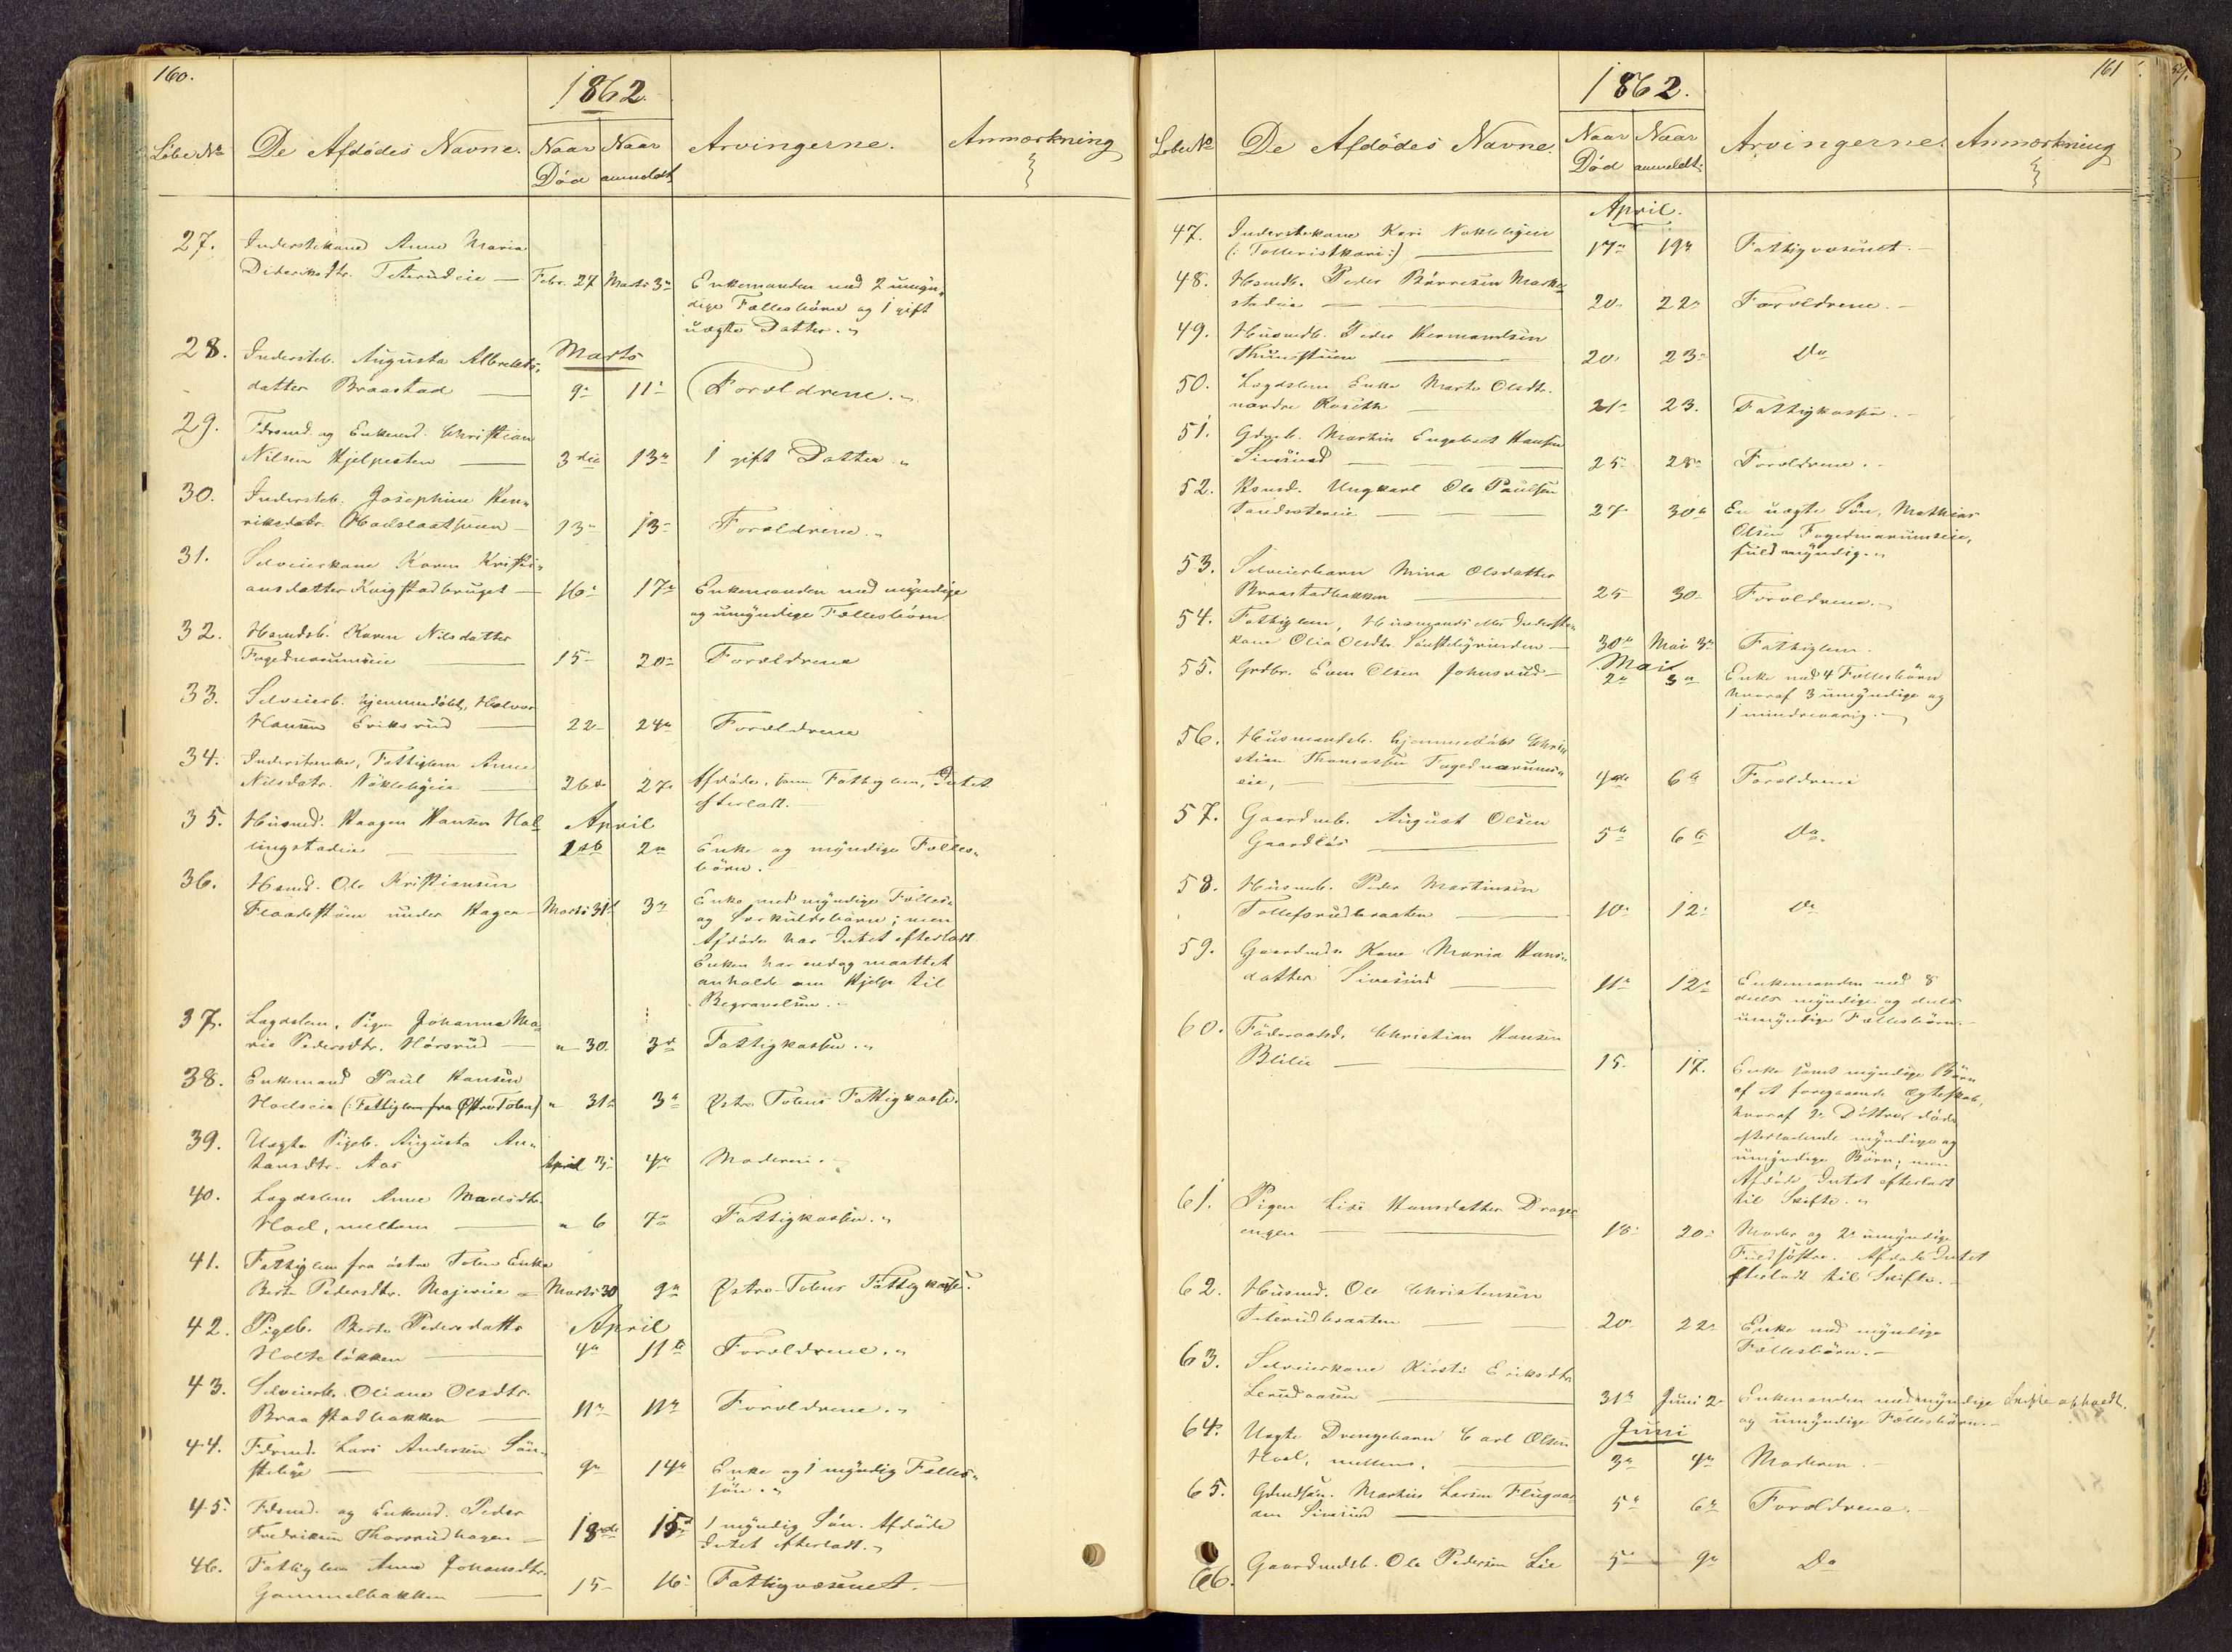 160.
1862.
Löbe No De Afdödes Navne. Naar Död Naar anmeldt Arvingerne. Anmærkning
27. Inderstekone Anne Maria
Dideriksdtr. Teterudeie — Febr. 27 Marts 3die Enkemanden med 2 umyn-
dige Fællesbörn og 1 gift
uægte Datter.
28. Indersteb. Augusta Albrekts- Marts
datter Braastad — 9 11 Forældrene.
29. Fdrmd. og Enkemd. Christian
Nilsen Hjelpesten — 3die 13 1 gift Datter.
30. Indersteb. Josephine Hen-
riksdatr. — 13 13 Forældrene.
31. Selveierkone Karen Kristi-
ansdatter Kvigstadbruget — 16 17 Enkemanden med myndige
og umyndige Fællesbörn
32. Hsmdsb. Karen Nilsdatter
FogednæruMseie — 15 20 Forældrene
33. Selveierb. hjemmedöbt, Halvor
Hansen Eriksrud — 22 24 Forældrene
34. Indersteenke, Fattiglem Anne
Nilsdatr. Nöklebyeie — 26 27 Afdöde, som Fattiglem, Intet
efterladt.
35. Husmd. Haagen Hansen Hal- April
lingstadeie — 1ste 2 Enke og myndige Fælles-
börn.
36. Hsmd. Ole Kristiansen
under Hagen — Marts 31 3 Enke med myndige Fælles-
og Særkuldsbörn; men
Afdöde har Intet efterladt
Enken har endog maattet
anholde om Hjelp til
Begravelsen.
37. Lægdslem, Pige Johanne Ma-
rie Pedersdtr. Hörsrud — " 30 3 Fattigkassen.
38. Enkemand Paul Hansen
Hoelseie (: Fattiglem fra Østre Toten) " 31 3 Østre Totens Fattigkasse.
39. Uægte Pigeb. Augusta An-
tonsdtr. Aas April 3 4 Moderen.
40. Lægdslem Anne Madsdtr.
Hoel, mellem — " 6 7 Fattigkassen.
41. Fattiglem fra östre Toten Enke
Berte Pedersdtr. Majereie Marts 30 9 Østre-Totens Fattigkasse.
42. Pigeb. Berte Pedersdatter April
Holtelökken — 4 11 Forældrene.
43. Selveierb. Oliane Olsdtr.
Braastadbakken — 11 11 Forældrene.
44. Fdrmd. Lars Andersen Sön-
steby — 9 14 Enke og 1 myndig Fælles-
sön.
45. Fdrmd. og Enkemd. Peder
Fredriksen Thorsrudhagen — 13de 15 1 myndig Sön. Afdöde
Intet efterladt.
46. Fattiglem Anne Johansdtr.
Gammelbakken — 15 16 Fattigvæsenet.
161
1862.
Löbe No De Afdödes Navne. Naar Död Naar anmeldt. Arvingerne. Anmærkning
April.
47. Inderstekone Kari Nöklebyeie
(: Tolleristkari :) — 17 19 Fattigvæsenet.
48. Hsmdb. Peder Börresen Marke-
stadeie — 20 22 Forældrene.
49. Husmdb. Peder Hermandsen
Thunstuen — 20 23 Do
50. Lægdslem Enke Marte Olsdtr.
nordre Roseth — 21 23. Fattigkassen.
51. Gdmb. Martin Engebret Hansen
Sivesind — 25 28 Forældrene.
52. Hsmd. Ungkarl Ole Paulsen
— 27 30 En uægte Sön, Mathias
Olsen
fuldmyndig.
53. Selveierbarn Mina Olsdatter
Braastadbakken — 25 30 Forældrene.
54. Fattiglem, Husmands eller Inderste-
kone Olia Olsdtr. — 30 Mai 3 Fattiglem.
55. Grdbr. Even Olsen Johnsrud — Mai 2 3 Enke med 4 Fællesbörn
hvoraf 3 umyndige og
1 mindreaarig.
56. Husmandsb. hjemmedöbt Chris-
tian Thomassen Fogednærums-
eie, — 4de 6 Forældrene
57. Gaardmb. August Olsen
Gaardlös — 5 6 Do.
58. Husmb. Peder Martinsen
Tollefsrudbraaten — 10 12 Do
59. Gaardmds. Kone Maria Hans-
datter Sivesind — 11 12 Enkemanden med 8
dels myndige og dels
umyndige Fællesbörn.
60. Föderaadsd. Christian Hansen
Blilie — 15 17. Enke samt myndige Börn
af et foregaaende Ægteskab,
hvoraf 2 Döttre döde
efterladende myndige og
umyndige Börn; men
Afdöde Intet efterladt
til Skifte.
61. Pigen Lise Hansdatter Drager-
engen — 18 20 Moder og 2 umyndige
Fuldsöstre. Afdöde Intet
efterladt til Skifte.
62. Husmd. Ole Christensen
Teterudbraaten — 20 22 Enke med myndige
Fællesbörn.
63. Selveierkone Kirsti Eriksdtr.
Lerudaasen — 31 Juni 2 Enkemanden med myndige Skifte afholdt.
og umyndige Fællesbörn.
64. Uægte Drengebarn Carl Olsen Juni
Hoel, mellem. — 3 4 Moderen.
65. Gdmdsön. Martin Larsen Flugaar-
den Sivesind — 5 6 Forældrene.
66. Gaardmdsb. Ole Pedersen Lie 5 9 Do